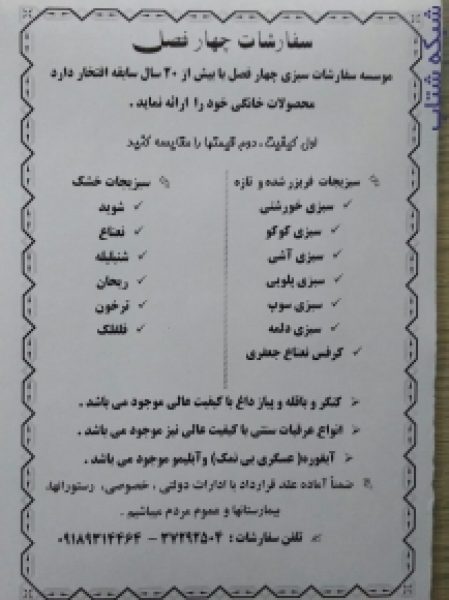 سفارشات چهار فصل
موسسه سفارشات سبزی چهار فصل با بیش از ۲۰ سال سابقه افتخار دارد
محصولات خانگی خود را ارائه نماید .
اول کیفیت ، دوم قیمتها را مقایسه کنید
سبزیجات فریزر شده و تازه
سبزی خورشتی
سبزی کوکو
سبزی آشی
سبزی پلویی
سبزی سوپ
سبزی دلمه
کرفس نعناع جعفری
سبزیجات خشک
شوید
نعناع
شنبلیله
ریحان
ترخون
فلفلک
کنگر و باقله و پیاز داغ با کیفیت عالی موجود می باشد .
انواع عرقیات سنتی با کیفیت عالی نیز موجود می باشد .
آبغوره( عسگری بی نمک) وآبلیمو موجود می باشد .
ضمناً آماده عقد قرارداد با ادارات دولتی ، خصوصی، رستورانها،
بیمارستانها و عموم مردم میباشیم .
تلفن سفارشات : ۳۷۲۹۲۵۰۴ – ۰۹۱۸۹۳۱۴۴۶۴
شبکه شتاب